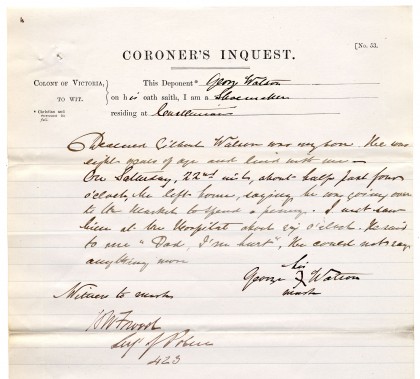 4
CORONER'S INQUEST.
[No. 53.
COLONY OF VICTORIA,
TO WIT.
* Christian and
Surname in
full.
This Deponent* George Watson
on his oath saith, I am a Shoemaker
residing at
Deceased Gilbert Watson was my son. He was
eight years of age and lived with me —
On Saturday, 22nd inst, about half past four
o'clock, he left home, saying he was going over
to the Market to spend a penny. I next saw
him at the Hospital about o'clock. He said
to me "Dad, I'm hurt", He could not say
anything more
his
George X Watson
mark
Witness to mark
of Police
423